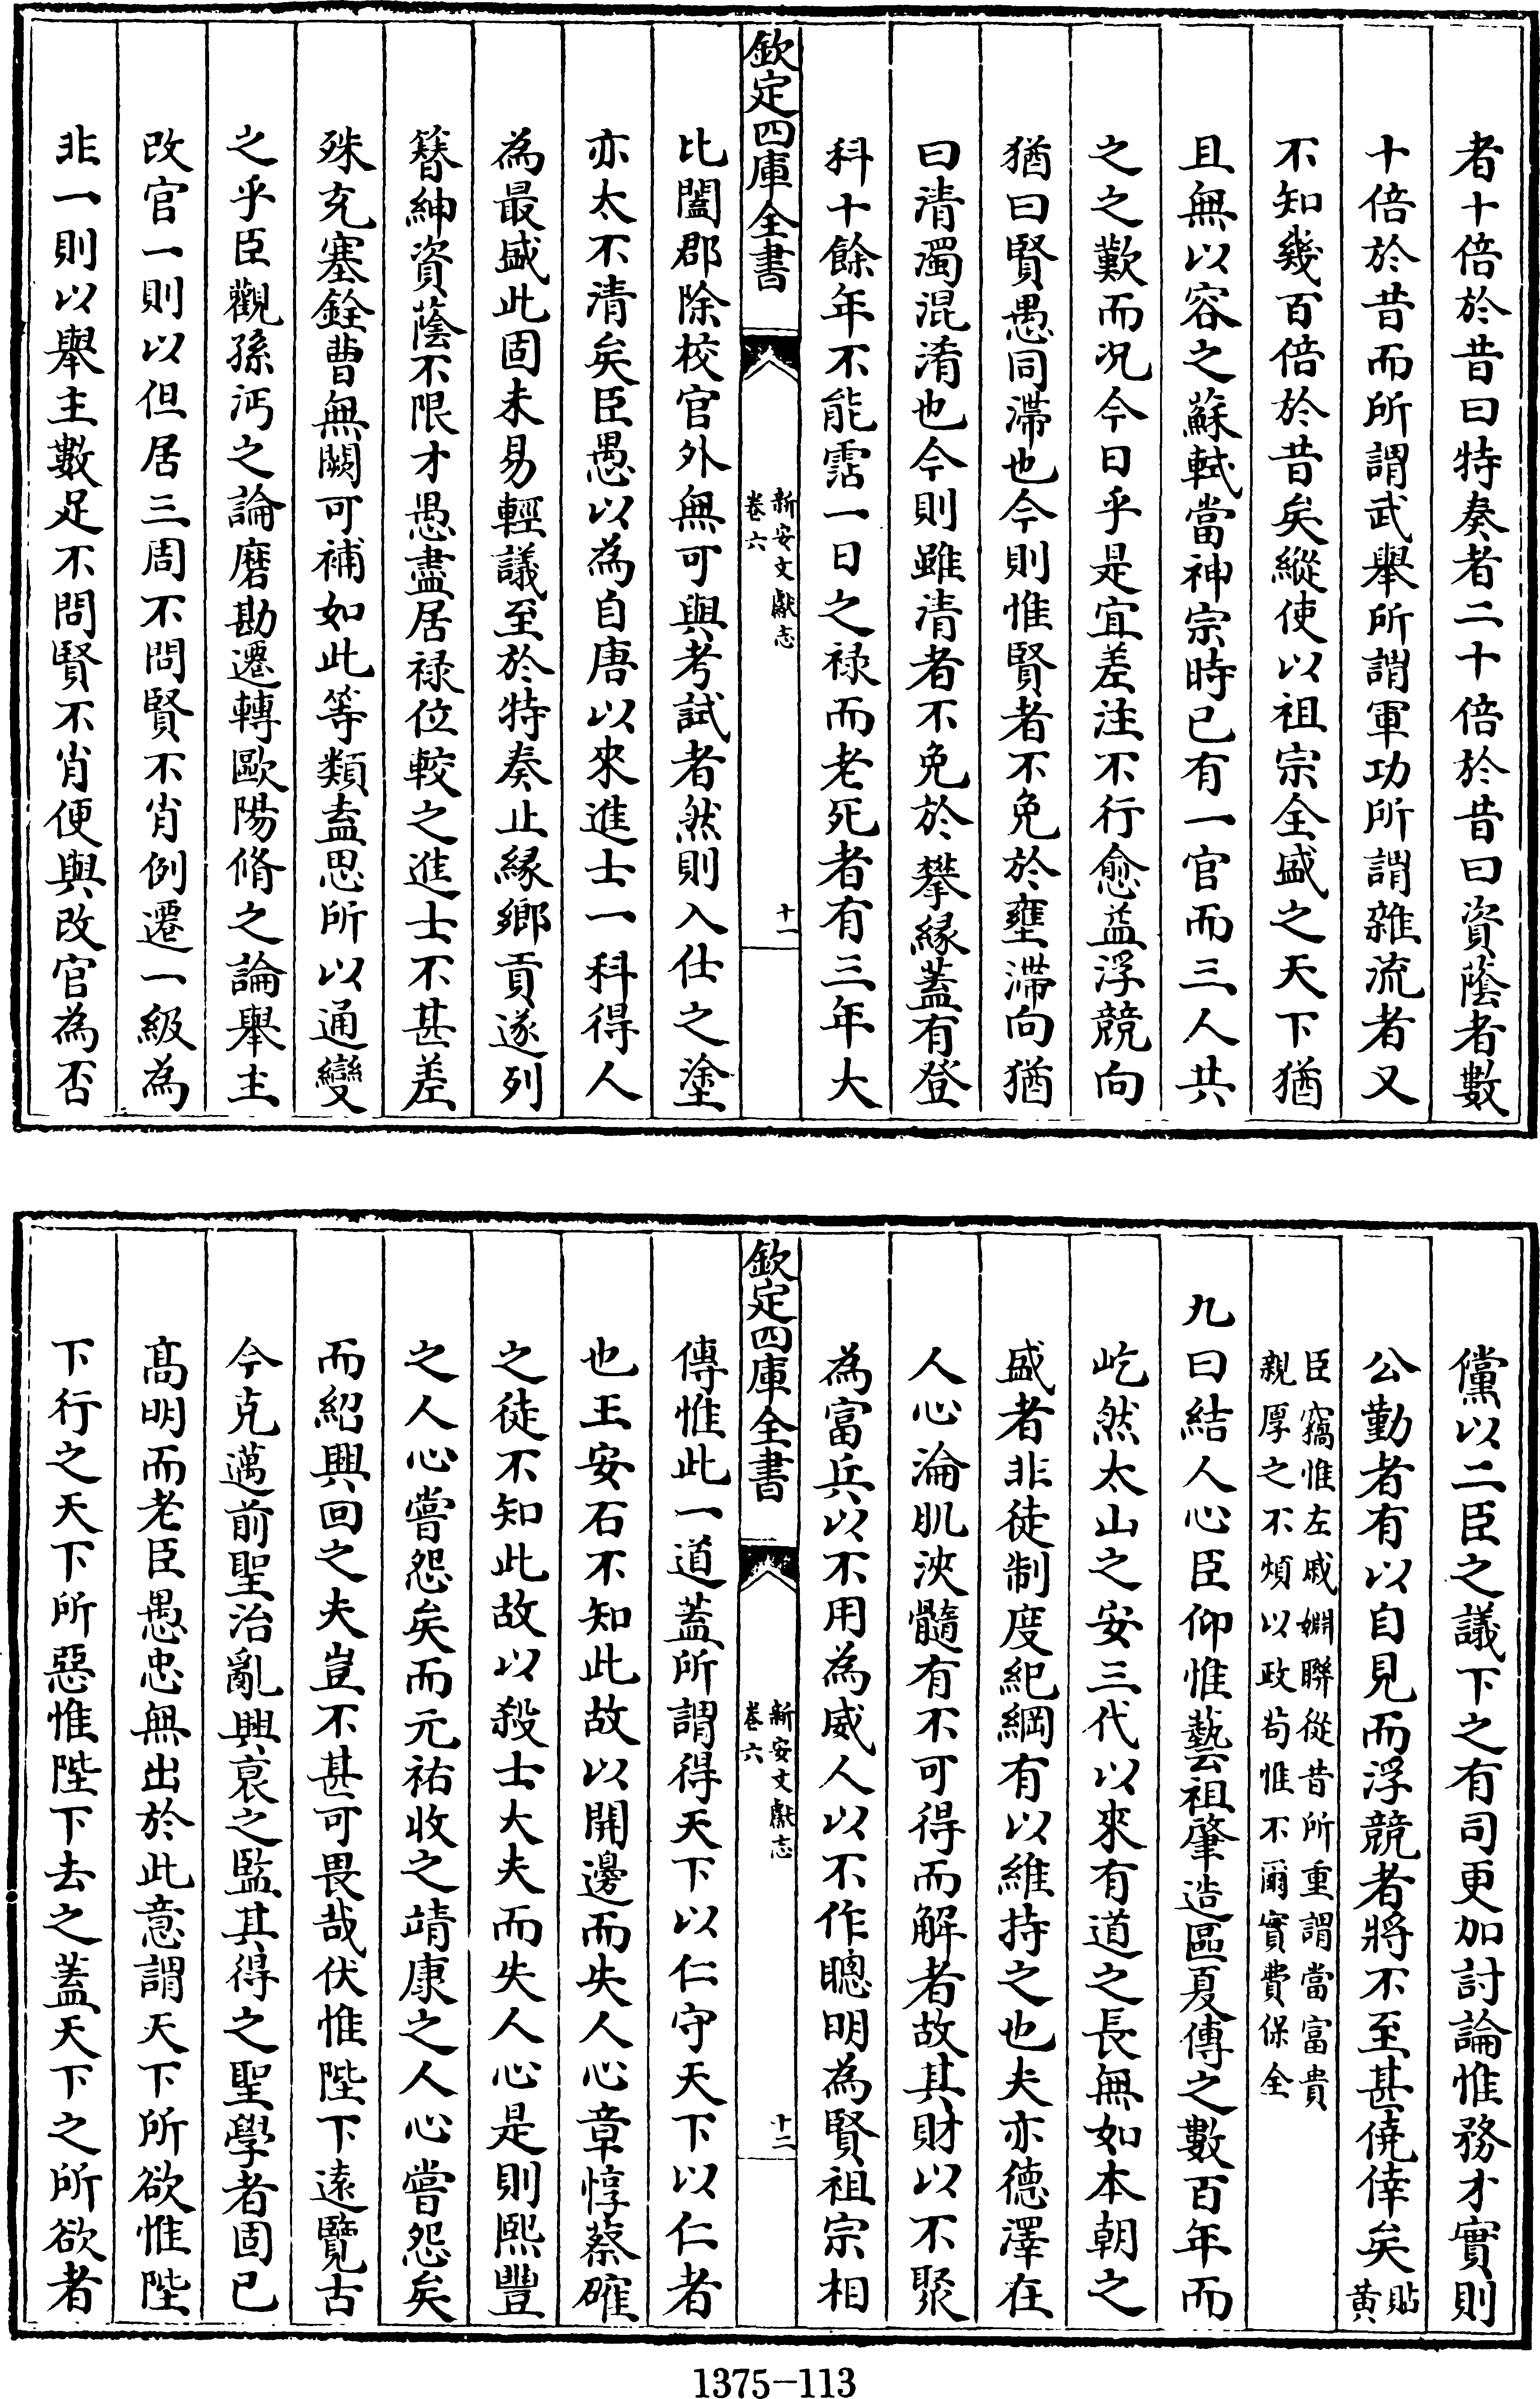 者十倍於昔曰特奏者二十倍於昔曰資蔭者數
十倍於昔而所謂武舉所謂軍功所謂雜流者又
不知幾百倍於昔矣縱使以祖宗全盛之天下猶
且無以容之蘇軾當神宗時已有一官而三人共
之之歎而况今日乎是宜差注不行愈益浮競向
猶曰賢愚同滯也今則惟賢者不免於壅滯向猶
曰清濁混淆也今則雖清者不免於攀緣蓋有登
科十餘年不能霑一日之祿而老死者有三年大
欽定四庫全書
新安文獻志
卷六
十一
比闔郡除校官外無可與考試者然則入仕之塗
亦太不清矣臣愚以為自唐以來進士一科得人
為最盛此固未易輕議至於特奏止緣鄉貢遂列
簪紳資蔭不限才愚盡居祿位較之進士不甚差
殊充塞銓曹無闕可補如此等類盍思所以通變
之乎臣觀孫沔之論磨勘遷轉歐陽脩之論舉主
改官一則以但居三周不問賢不肖例遷一級為
非一則以舉主數足不問賢不肖便與改官為否
儻以二臣之議下之有司更加討論惟務才實則
公勤者有以自見而浮競者將不至甚僥倖矣貼黄
臣竊惟左戚婣聯從昔所重謂當富貴
親厚之不煩以政茍惟不爾實費保全
九曰結人心臣仰惟藝祖肇造區夏傳之數百年而
屹然太山之安三代以來有道之長無如本朝之
盛者非徒制度紀綱有以維持之也夫亦德澤在
人心淪肌浹髓有不可得而解者故其財以不聚
為富兵以不用為威人以不作聰明為賢祖宗相
欽定四庫全書
新安文獻志
卷六
十二
傳惟此一道蓋所謂得天下以仁守天下以仁者
也王安石不知此故以開邊而失人心章惇蔡確
之徒不知此故以殺士大夫而失人心是則熙豐
之人心嘗怨矣而元祐收之靖康之人心嘗怨矣
而紹興回之夫豈不甚可畏哉伏惟陛下遠覽古
今克邁前聖治亂興衰之監其得之聖學者固已
髙明而老臣愚忠無出於此意謂天下所欲惟陛
下行之天下所惡惟陛下去之蓋天下之所欲者
1375-113